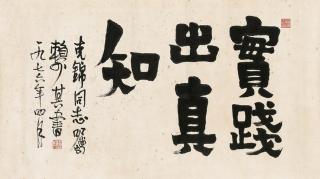 實踐
出真
知
東錦同志囑
賴少其書
一九七六年四月